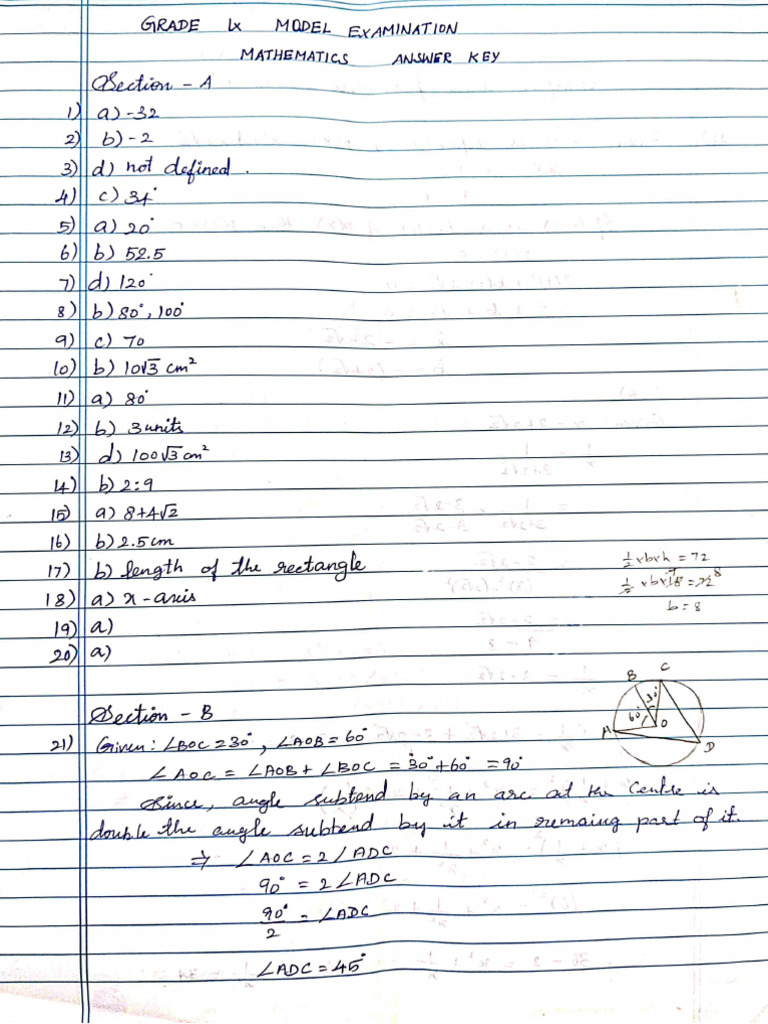 GRADE IX MODEL EXAMINATION
MATHEMATICS ANSWER KEY
Section - A
1) a) -32
2) b) -2
3) d) not defined.
4) c) 34°
5) a) 20°
6) b) 52.5
7) d) 120°
8) b) 80°, 100°
9) c) 70
10) b) 10√3 cm²
11) a) 80°
12) b) 3 units
13) d) 100√3 cm²
14) b) 2:9
15) a) 8+4√2
16) b) 2.5 cm
17) b) length of the rectangle
1/2 x b x h = 72
18) a) x-axis
1/2 x b x 18 = 72 8
b = 8
19) a)
20) a)
B C
Section - B
60° 30° O
A D
21) Given: ∠BOC = 30°, ∠AOB = 60°
∠AOC = ∠AOB + ∠BOC = 30° + 60° = 90°
Since, angle subtend by an arc at the Centre is
double the angle subtend by it in remaing part of it.
⇒ ∠AOC = 2∠ADC
90° = 2∠ADC
90°/2 = ∠ADC
∠ADC = 45°